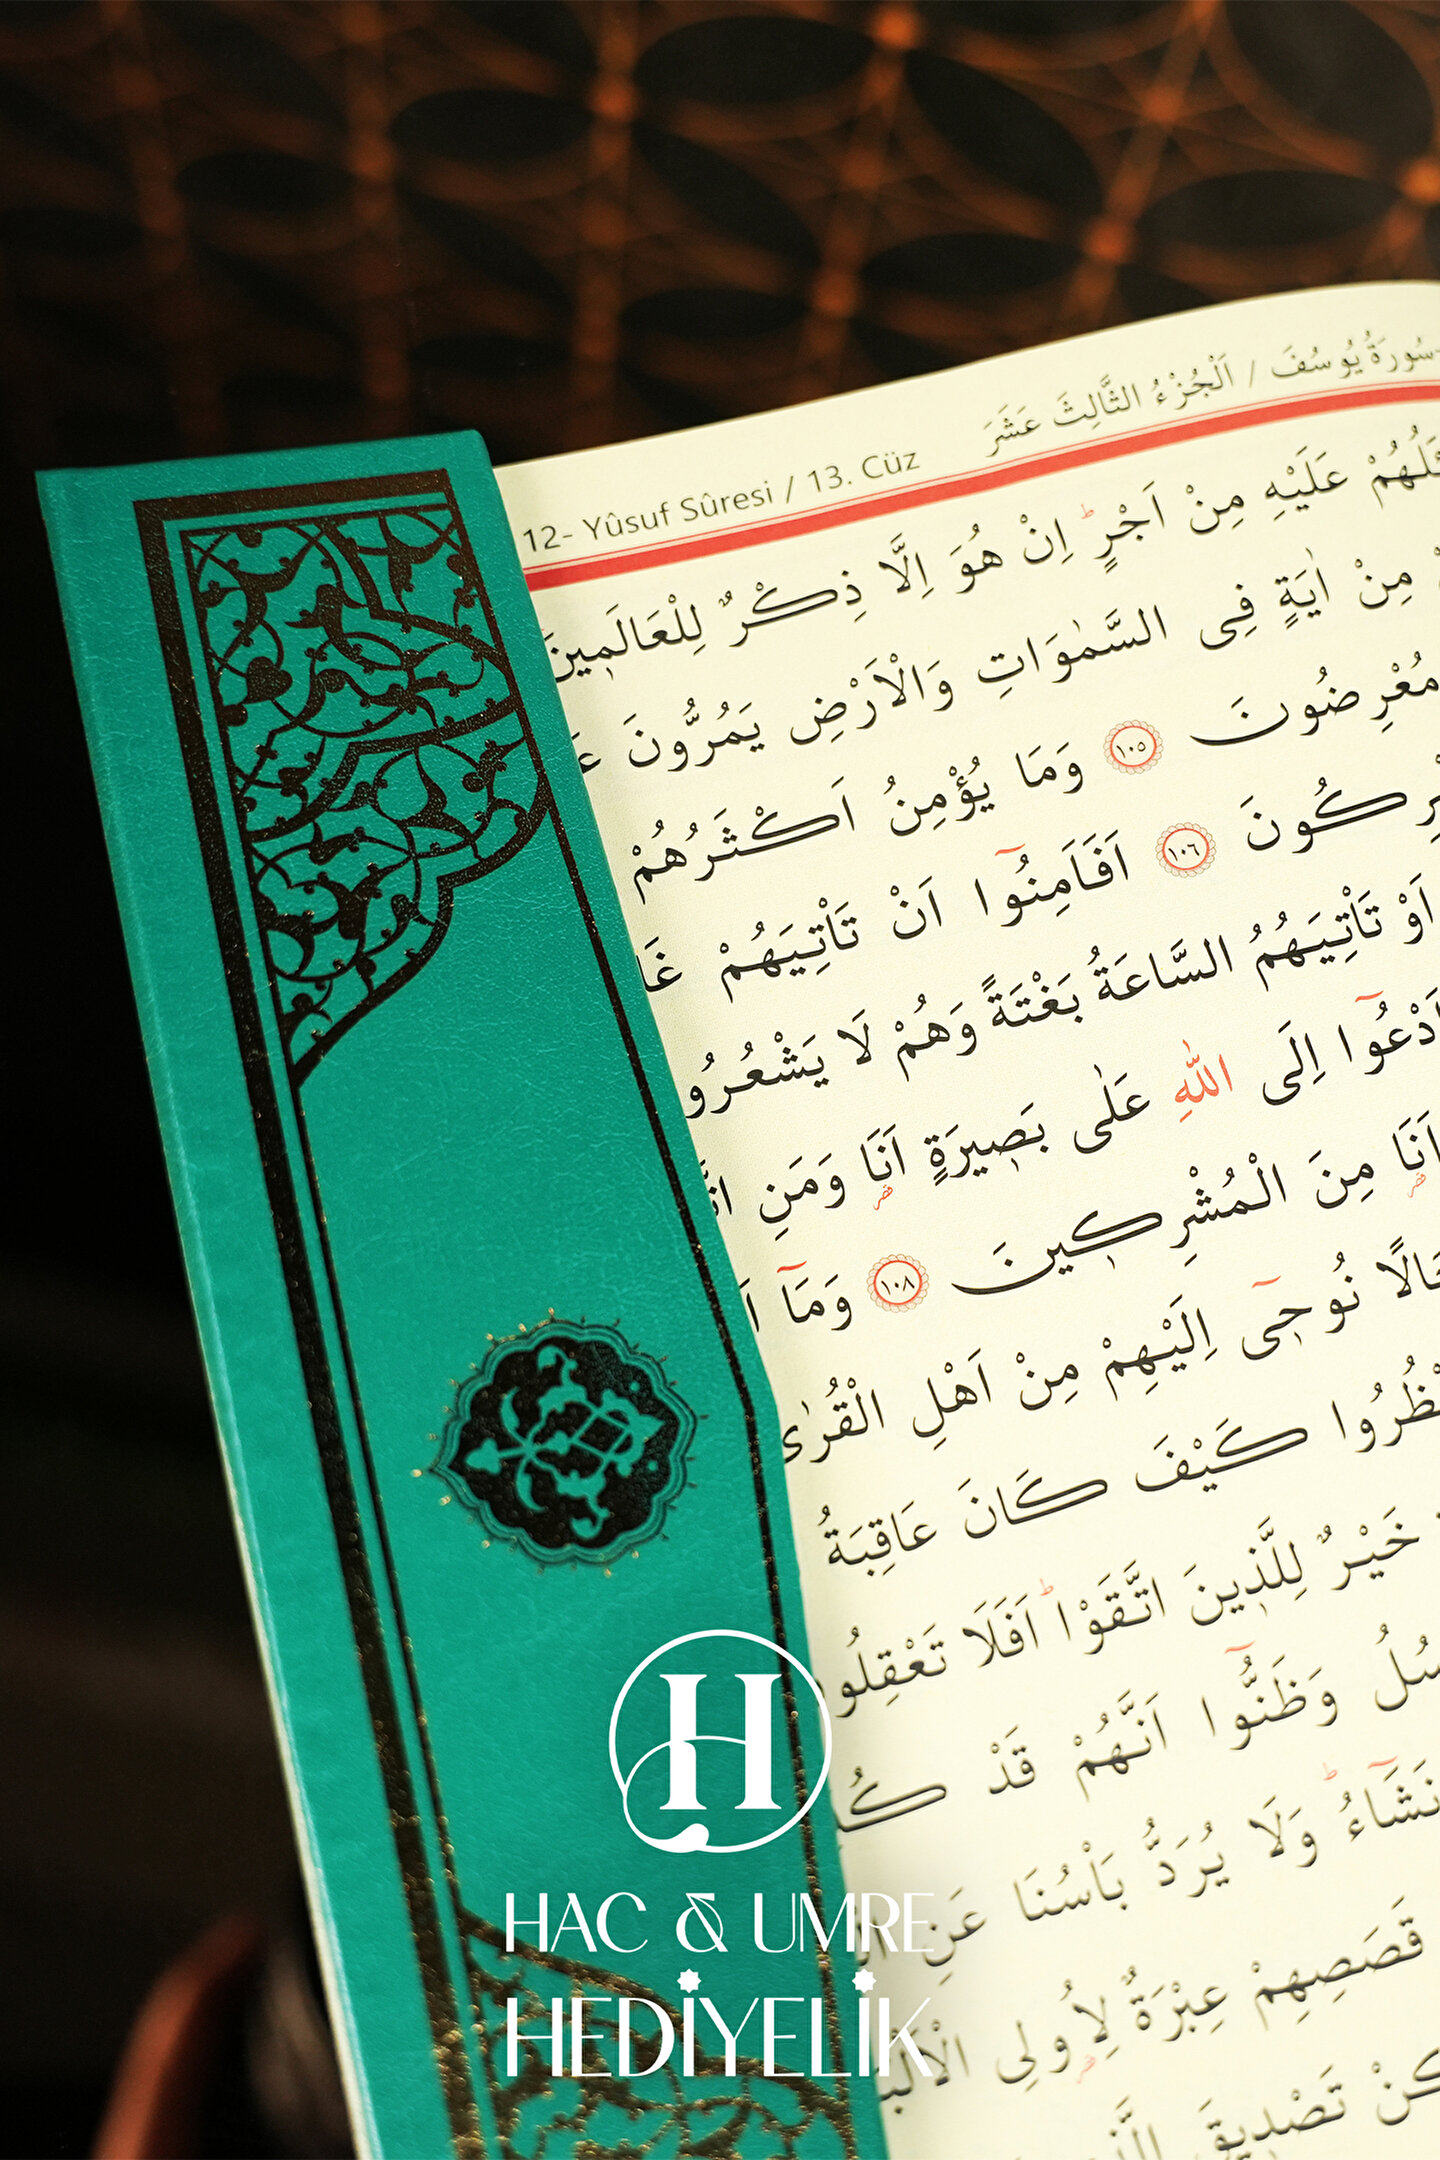 سُورَةُ يُوسُفَ / اَلْجُزْءُ الثَّالِثَ عَشَرَ
12- Yûsuf Sûresi / 13. Cüz
عَلَيْهِ مِنْ اَجْرٍۜ اِنْ هُوَ اِلَّا ذِكْرٌ لِلْعَالَمٖينَ
مِنْ اٰيَةٍ فِى السَّمٰوَاتِ وَالْاَرْضِ يَمُرُّونَ
مُعْرِضُونَ ١٠٥ وَمَا يُؤْمِنُ اَكْثَرُهُمْ
١٠٦ اَفَاَمِنُٓوا اَنْ تَاْتِيَهُمْ
اَوْ تَاْتِيَهُمُ السَّاعَةُ بَغْتَةً وَهُمْ لَا
اَدْعُٓوا اِلَى اللّٰهِ عَلٰى بَصٖيرَةٍ اَنَا۬ وَمَنِ
اَنَا۬ مِنَ الْمُشْرِكٖينَ ١٠٨ وَمَٓا
نُوحٖٓى اِلَيْهِمْ مِنْ اَهْلِ الْقُرٰى
كَيْفَ كَانَ عَاقِبَةُ
خَيْرٌ لِلَّذٖينَ اتَّقَوْاۜ اَفَلَا
وَظَنُّٓوا اَنَّهُمْ قَدْ
نَشَٓاءُۜ وَلَا يُرَدُّ بَاْسُنَا عَنِ
قَصَصِهِمْ عِبْرَةٌ لِاُو۬لِى
تَصْدٖيقَ
H
HAC & UMRE
HEDİYELİK